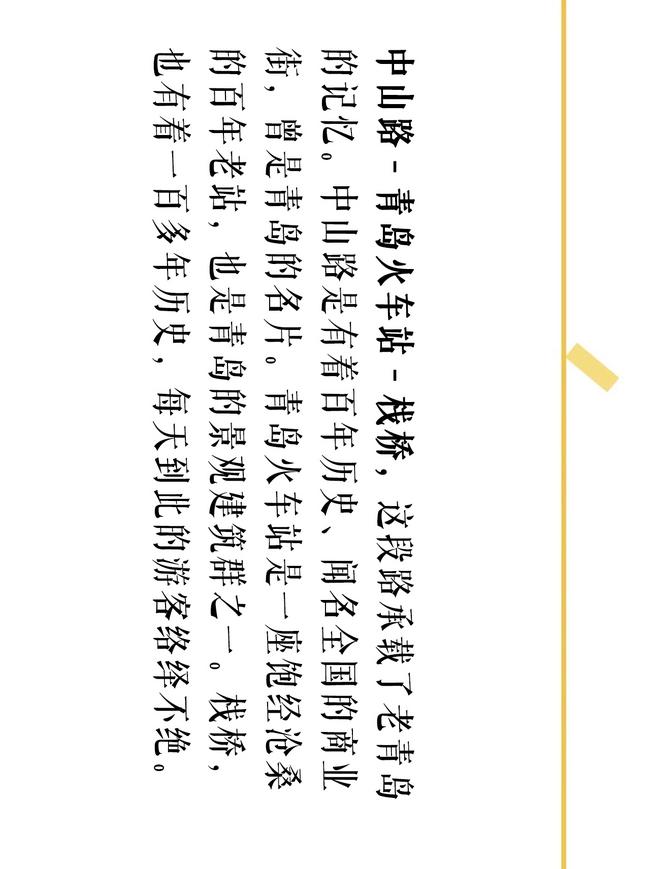 中山路 - 青岛火车站 - 栈桥，这段路承载了老青岛
的记忆。中山路是有着百年历史、闻名全国的商业
街，曾是青岛的名片。青岛火车站是一座饱经沧桑
的百年老站，也是青岛的景观建筑群之一。栈桥，
也有着一百多年历史，每天到此的游客络绎不绝。